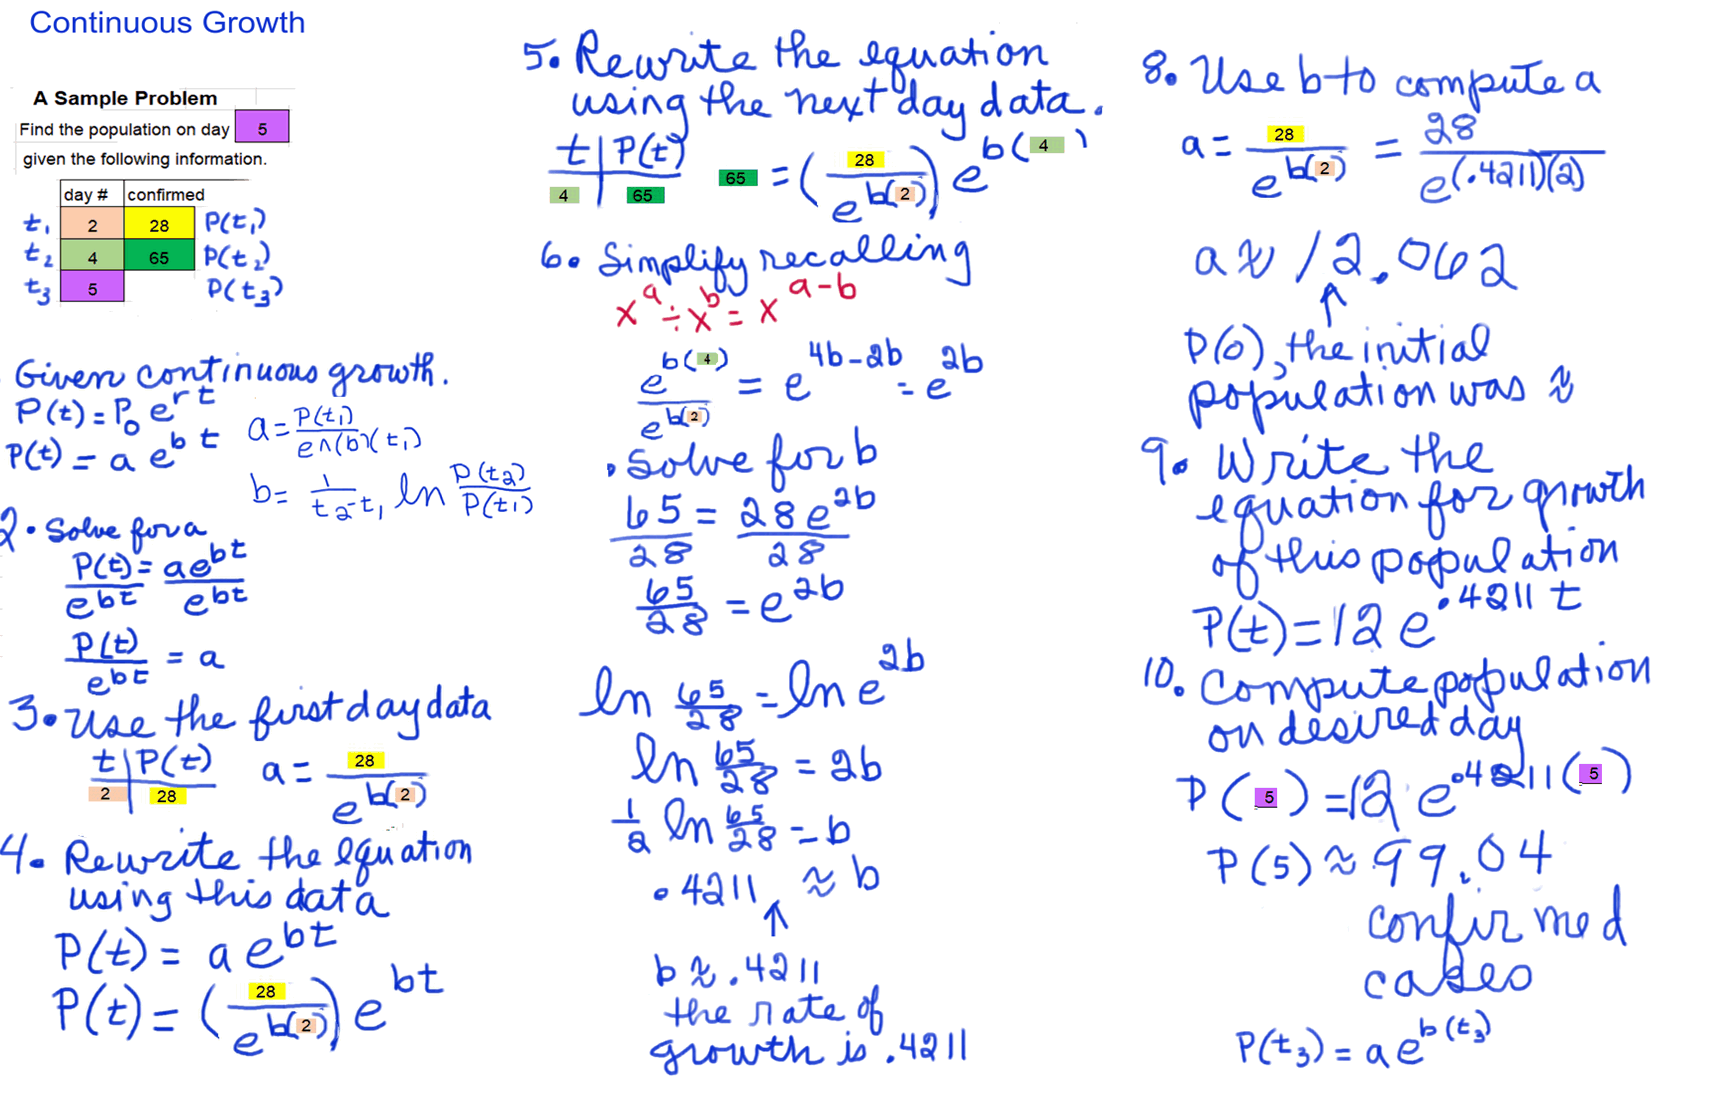 Continuous Growth
A Sample Problem
Find the population on day 5
given the following information.
day # confirmed
t₁ 2 28 P(t₁)
t₂ 4 65 P(t₂)
t₃ 5 P(t₃)
Given continuous growth.
P(t) = P₀ e^rt
P(t) = a e^bt
a = P(t₁) / e^(b)(t₁)
b = 1/(t₂-t₁) ln P(t₂)/P(t₁)
2. Solve for a
P(t)/e^bt = ae^bt/e^bt
P(t)/e^bt = a
3. Use the first day data
t | P(t)
2 | 28
a = 28/e^b(2)
4. Rewrite the equation
using this data
P(t) = a e^bt
P(t) = (28/e^b(2)) e^bt
5. Rewrite the equation
using the next day data.
t | P(t)
4 | 65
65 = (28/e^b(2)) e^b(4)
6. Simplify recalling
x^a ÷ x^b = x^a-b
e^b(4)/e^b(2) = e^4b-2b = e^2b
. Solve for b
65/28 = 28e^2b/28
65/28 = e^2b
ln 65/28 = ln e^2b
ln 65/28 = 2b
1/2 ln 65/28 = b
.4211 ≈ b
↑
b ≈ .4211
the rate of
growth is .4211
8. Use b to compute a
a = 28/e^b(2) = 28/e^(.4211)(2)
a ≈ 12.062
↑
P(0), the initial
population was ≈
9. Write the
equation for growth
of this population
P(t) = 12 e^.4211 t
10. Compute population
on desired day
P(5) = 12 e^.4211(5)
P(5) ≈ 99.04
confirmed
cases
P(t₃) = a e^b(t₃)